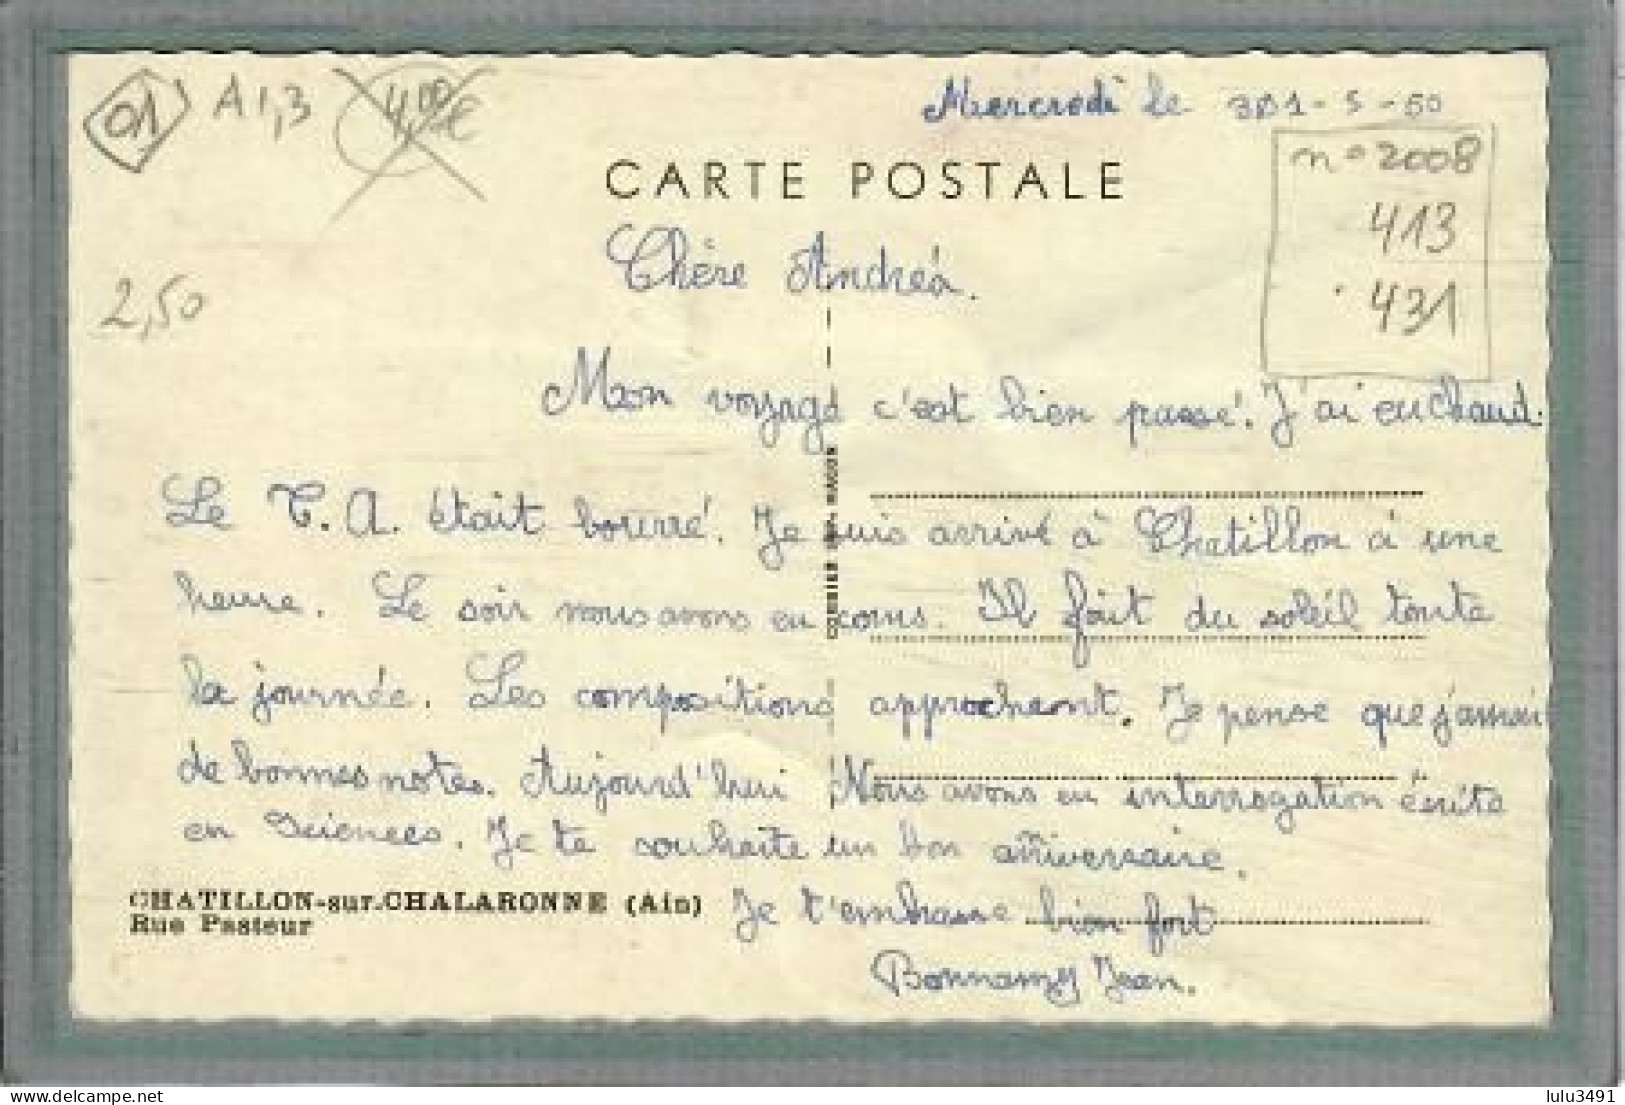 01 A 1,3 4,00€
Mercredi le 31-5-50
CARTE POSTALE
n° 2008
413
431
2,50
Chère Andréa.
Mon voyage c'est bien passé. J'ai eu chaud.
Le T.A. était bourré. Je suis arrivé à Chatillon à une
heure. Le soir nous avons eu cours. Il fait du soleil toute
la journée. Les compositions approchent. Je pense que j'aurai
de bonnes notes. Aujourd'hui Nous avons eu interrogation écrite
en Sciences. Je te souhaite un bon anniversaire.
CHATILLON-sur-CHALARONNE (Ain) Je t'embrasse bien fort
Rue Pasteur
Bonnamy Jean.
lulu3491